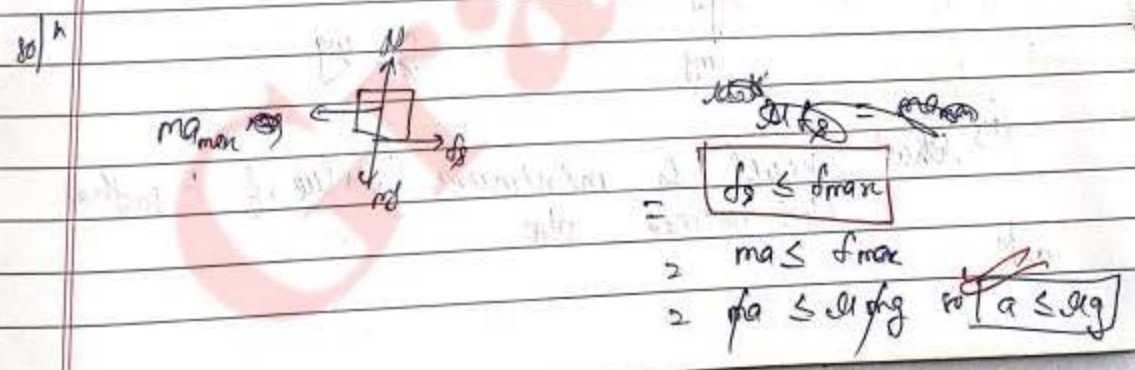 so
N
ma max
fs
mg
fs ≤ fmax
= ma ≤ fmax
= ma ≤ μmg so a ≤ μg